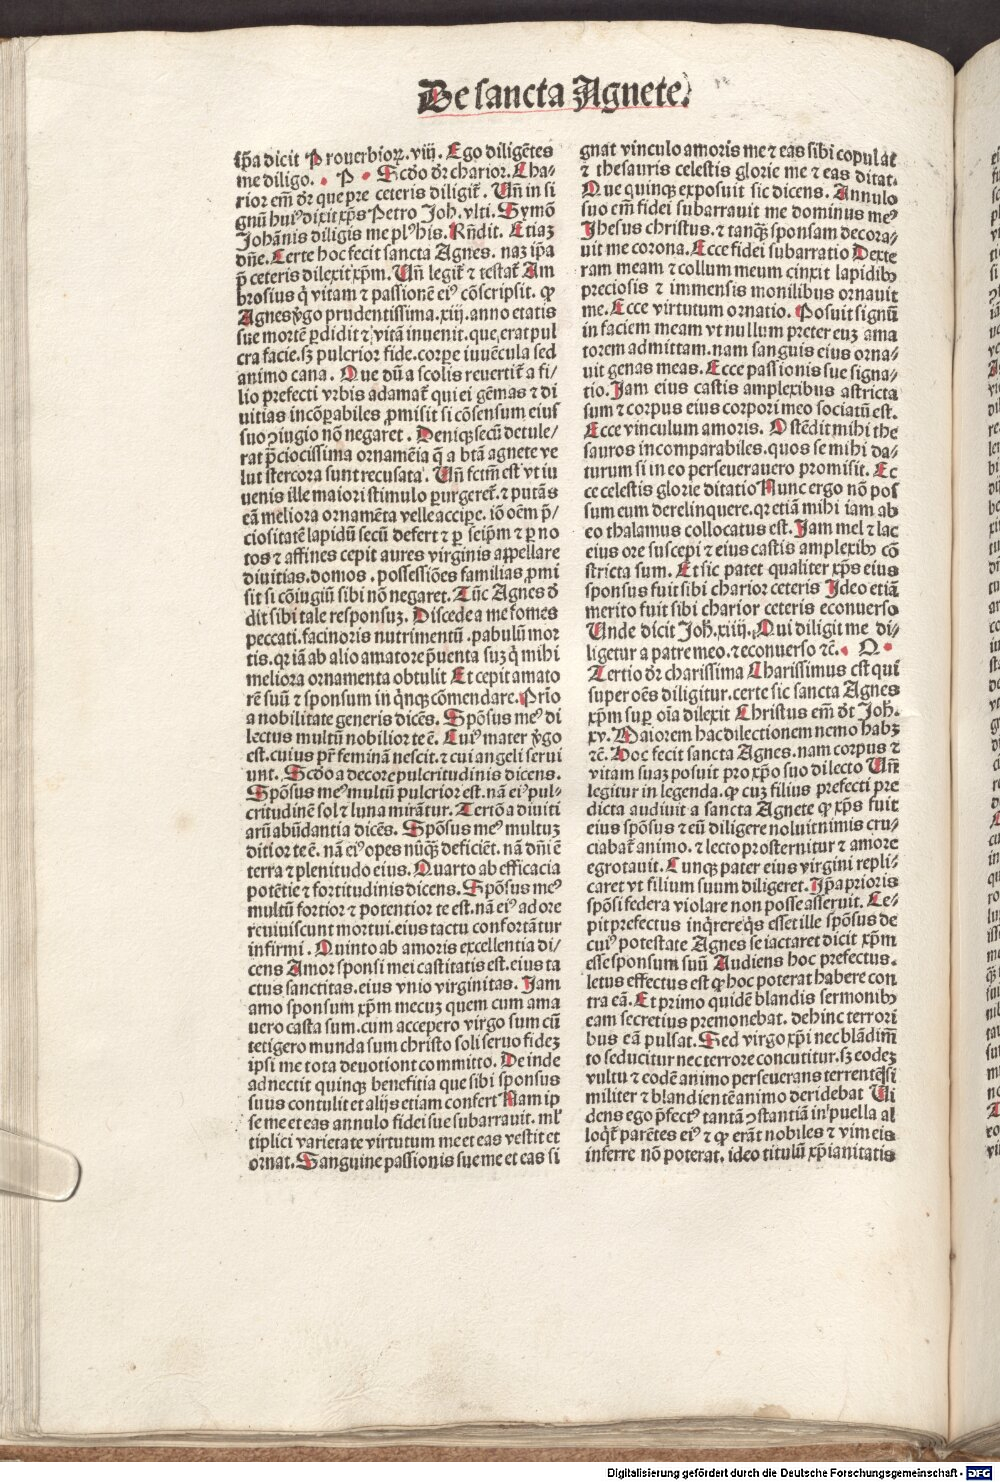 De sancta Agnete.
ip̄a dicit Prouerbioꝝ.viij. Ego diligētes
me diligo. . P . Scd̄o dr̄ charior. Cha-
rior em̄ dr̄ que pre ceteris diligit̄. Un̄ in si
gnū huiꝰ dixit xp̄s Petro Joh. vlti. Symō
Johānis diligis me plꝰ his. Rn̄dit. Etiaꝫ
dn̄e. Certe hoc fecit sancta Agnes. naꝫ ip̄a
p̄ ceteris dilexit xp̄m. Un̄ legit̄ ⁊ testat̄ Am
brosius q̇ vitam ⁊ passionē eiꝰ cōscripsit. ꝙ
Agnes v̄go prudentissima.xiij. anno etatis
sue mortē ꝑdidit ⁊ vitā inuenit. que erat pul
cra facie. sꝫ pulcrior fide. corꝑe iuuēcula sed
animo cana. Que dū a scolis reuertit̄ a fi-
lio prefecti vrbis adamat̄ qui ei gēmas ⁊ di
uitias incōꝑabiles ꝓmisit si cōsensum eius
suo ↄiugio nō negaret. Deniqꝫ secū detule/
rat p̄ciocissima ornamēia q̄ a btā agnete ve
lut stercora sunt recusata. Un̄ fctm̄ est vt iu
uenis ille maiori stimulo ꝑurgeret̄. ⁊ putās
eā meliora ornamēta velle acciꝑe. iō oēm p̄/
ciositatē lapidū secū defert ⁊ ꝑ seip̄m ⁊ ꝑ no
tos ⁊ affines cepit aures virginis appellare
diuitias.domos. possessiōes familias ꝓmi
sit si cōiugiū sibi nō negaret. Tūc Agnes d̄
dit sibi tale responsuꝫ. Discede a me fomes
peccati. facinoris nutrimentū. pabulū mor
tis. qꝛ iā ab alio amatore p̄uenta suꝫ q̇ mihi
meliora ornamenta obtulit Et cepit amato
rē suū ⁊ sponsum in q̇nqꝫ cōmendare. Prīo
a nobilitate generis dicēs. Spōsus meꝰ di
lectus multū nobilior te ē. Cuiꝰ mater v̄go
est.cuius pr̄ feminā nescit.⁊ cui angeli serui
unt. Scd̄o a decore pulcritudinis dicens.
Spōsus meꝰ multū pulcrior est. nā eiꝰ pul-
critudinē sol ⁊ luna mirātur. Tertō a diuiti
arū abūdantia dicēs. Spōsus meꝰ multuꝫ
ditior te ē. nā eiꝰ opes nūqꝫ̄ deficiēt. nā dn̄i ē
terra ⁊ plenitudo eius. Quarto ab efficacia
potētie ⁊ fortitudinis dicens. Spōsus meꝰ
multū fortior ⁊ potentior te est.nā eiꝰ adore
reuiuiscunt mortui.eius tactu confortātur
infirmi. Quinto ab amoris excellentia di/
cens Amor sponsi mei castitatis est. eius ta
ctus sanctitas. eius vnio virginitas. Jam
amo sponsum xp̄m mecuꝫ quem cum ama
uero casta sum. cum accepero virgo sum cū
tetigero munda sum christo soli seruo fideꝫ
ipsi me tota deuotiont committo. De inde
adnectit quinqꝫ benefitia que sibi sponsus
suus contulit et alijs etiam confert Nam ip
se me et eas annulo fidei sue subarrauit. ml̄
tiplici varietate virtutum me et eas vestit et
ornat. Sanguine passionis sue me et eas si
gnat vinculo amoris me ⁊ eas sibi copulat
⁊ thesauris celestis glorie me ⁊ eas ditat.
Que quinqꝫ exposuit sic dicens. Annulo
suo em̄ fidei subarrauit me dominus meꝰ
Jhesus christus. ⁊ tanqꝫ̄ sponsam decora/
uit me corona. Ecce fidei subarratio Dexte
ram meam ⁊ collum meum cinxit lapidibꝰ
preciosis ⁊ immensis monilibus ornauit
me. Ecce virtutum ornatio. Posuit signū
in faciem meam vt nullum preter euꝫ ama
torem admittam. nam sanguis eius orna/
uit genas meas. Ecce passionis sue signa-
tio. Jam eius castis amplexibus astricta
sum ⁊ corpus eius corpori meo sociatū est.
Ecce vinculum amoris. Ostēdit mihi the
sauros incomparabiles. quos se mihi da/
turum si in eo perseuerauero promisit. Ec
ce celestis glorie ditatio Nunc ergo nō pos
sum eum derelinquere. qꝛ etiā mihi iam ab
eo thalamus collocatus est. Jam mel ⁊ lac
eius ore suscepi ⁊ eius castis amplexibꝰ cō
stricta sum. Et sic patet qualiter xp̄s eius
sponsus fuit sibi charior ceteris Jdeo etiā
merito fuit sibi charior ceteris econuerso
Unde dicit Joh̄. xiiij. Qui diligit me di/
ligetur a patre meo. ⁊ econuerso ⁊c. . Q .
Tertio dr̄ charissima Charissimus est qui
super oēs diligitur. certe sic sancta Agnes
xp̄m suꝑ oīa dilexit Christus em̄ dt̄ Joh̄.
xv. Maiorem hac dilectionem nemo habꝫ
⁊c. Hoc fecit sancta Agnes. nam corpus ⁊
vitam suaꝫ posuit pro xp̄o suo dilecto Un̄
legitur in legenda. ꝙ cuꝫ filius prefecti pre
dicta audiuit a sancta Agnete ꝙ xp̄s fuit
eius spōsus ⁊ eū diligere noluit nimis cru/
ciabat̄ animo. ⁊ lecto prosternitur ⁊ amore
egrotauit. Cunqꝫ pater eius virgini repli/
caret vt filium suum diligeret. Jp̄a prioris
spōsi federa violare non posse asseruit. Ce-
pit prefectus inq̇rere q̇s esset ille spōsus de
cuiꝰ potestate Agnes se iactaret dicit xp̄m
esse sponsum suū Audiens hoc prefectus.
letus effectus est ꝙ hoc poterat habere con
tra eā. Et primo quidē blandis sermonibꝰ
eam secretius premonebat. dehinc terrori
bus eā pulsat. Sed virgo xp̄i nec blādim̄
to seducitur nec terrore concutitur. sꝫ eodeꝫ
vultu ⁊ eodē animo perseuerans terrentē si
militer ⁊ blandientē animo deridebat Ui
dens ego p̄fectꝰ tantā ↄstantiā in puella al
loqt̄ parētes eiꝰ ⁊ ꝙ erāt nobiles ⁊ vim eis
inferre nō poterat. ideo titulū xp̄ianitatis
Digitalisierung gefördert durch die Deutsche Forschungsgemeinschaft - DFG